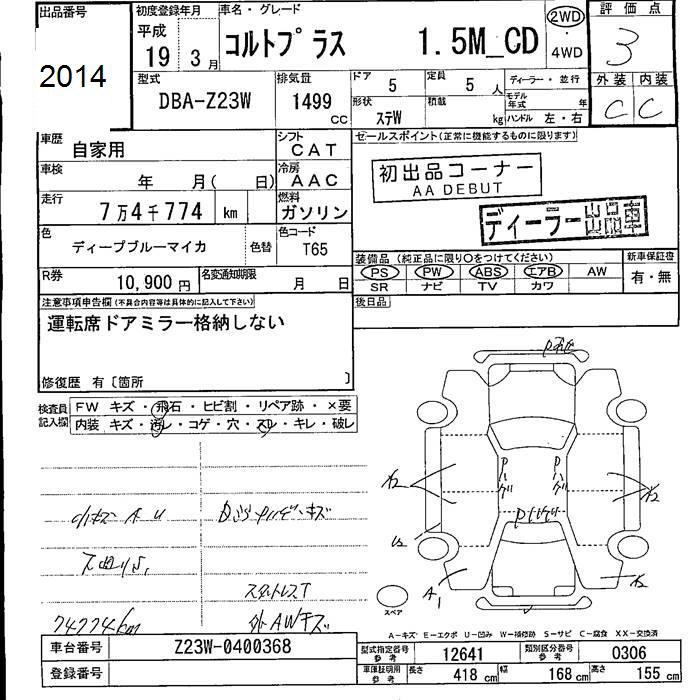 出品番号
2014
初度登録年月
平成
19 3月
車名・グレード
コルトプラス 1.5M_CD
2WD
・
4WD
評価点
3
外装 内装
C C
型式
DBA-Z23W
排気量
1499
CC
ドア 5
定員 5人
形状 ステW
積載 kg
ディーラー・並行
モデル年式 年
ハンドル 左・右
車歴
自家用
シフト
CAT
車検
年 月( 日)
冷房
AAC
走行
7万4千774 km
燃料
ガソリン
色
ディープブルーマイカ
色替
色コード
T65
R券
10,900円
名変通知期限
月 日
セールスポイント(正常に機能するものに限ります)
初出品コーナー
AA DEBUT
ディーラー出品車
装備品(純正品に限り○をつけてください)
新車保証書
PS PW ABS エアB AW
SR ナビ TV カワ
有・無
後日品
注意事項申告欄(不具合内容等は具体的に記入して下さい)
運転席ドアミラー格納しない
修復歴 有〔箇所 〕
検査員記入欄
FW キズ・飛石・ヒビ割・リペア跡・×要
内装 キズ・汚レ・コゲ・穴・スレ・キレ・破レ
小キズ A U
スタットレスT
外AWキズ
74774km
A1
スペア
A-キズ E-エクボ U-凹み W-補修跡 S-サビ C-腐食 XX-交換済
車台番号
Z23W-0400368
登録番号
型式指定番号
参考
12641
類別区分番号
参考
0306
車庫証明用
参考
長さ 418 cm
幅 168 cm
高さ 155 cm